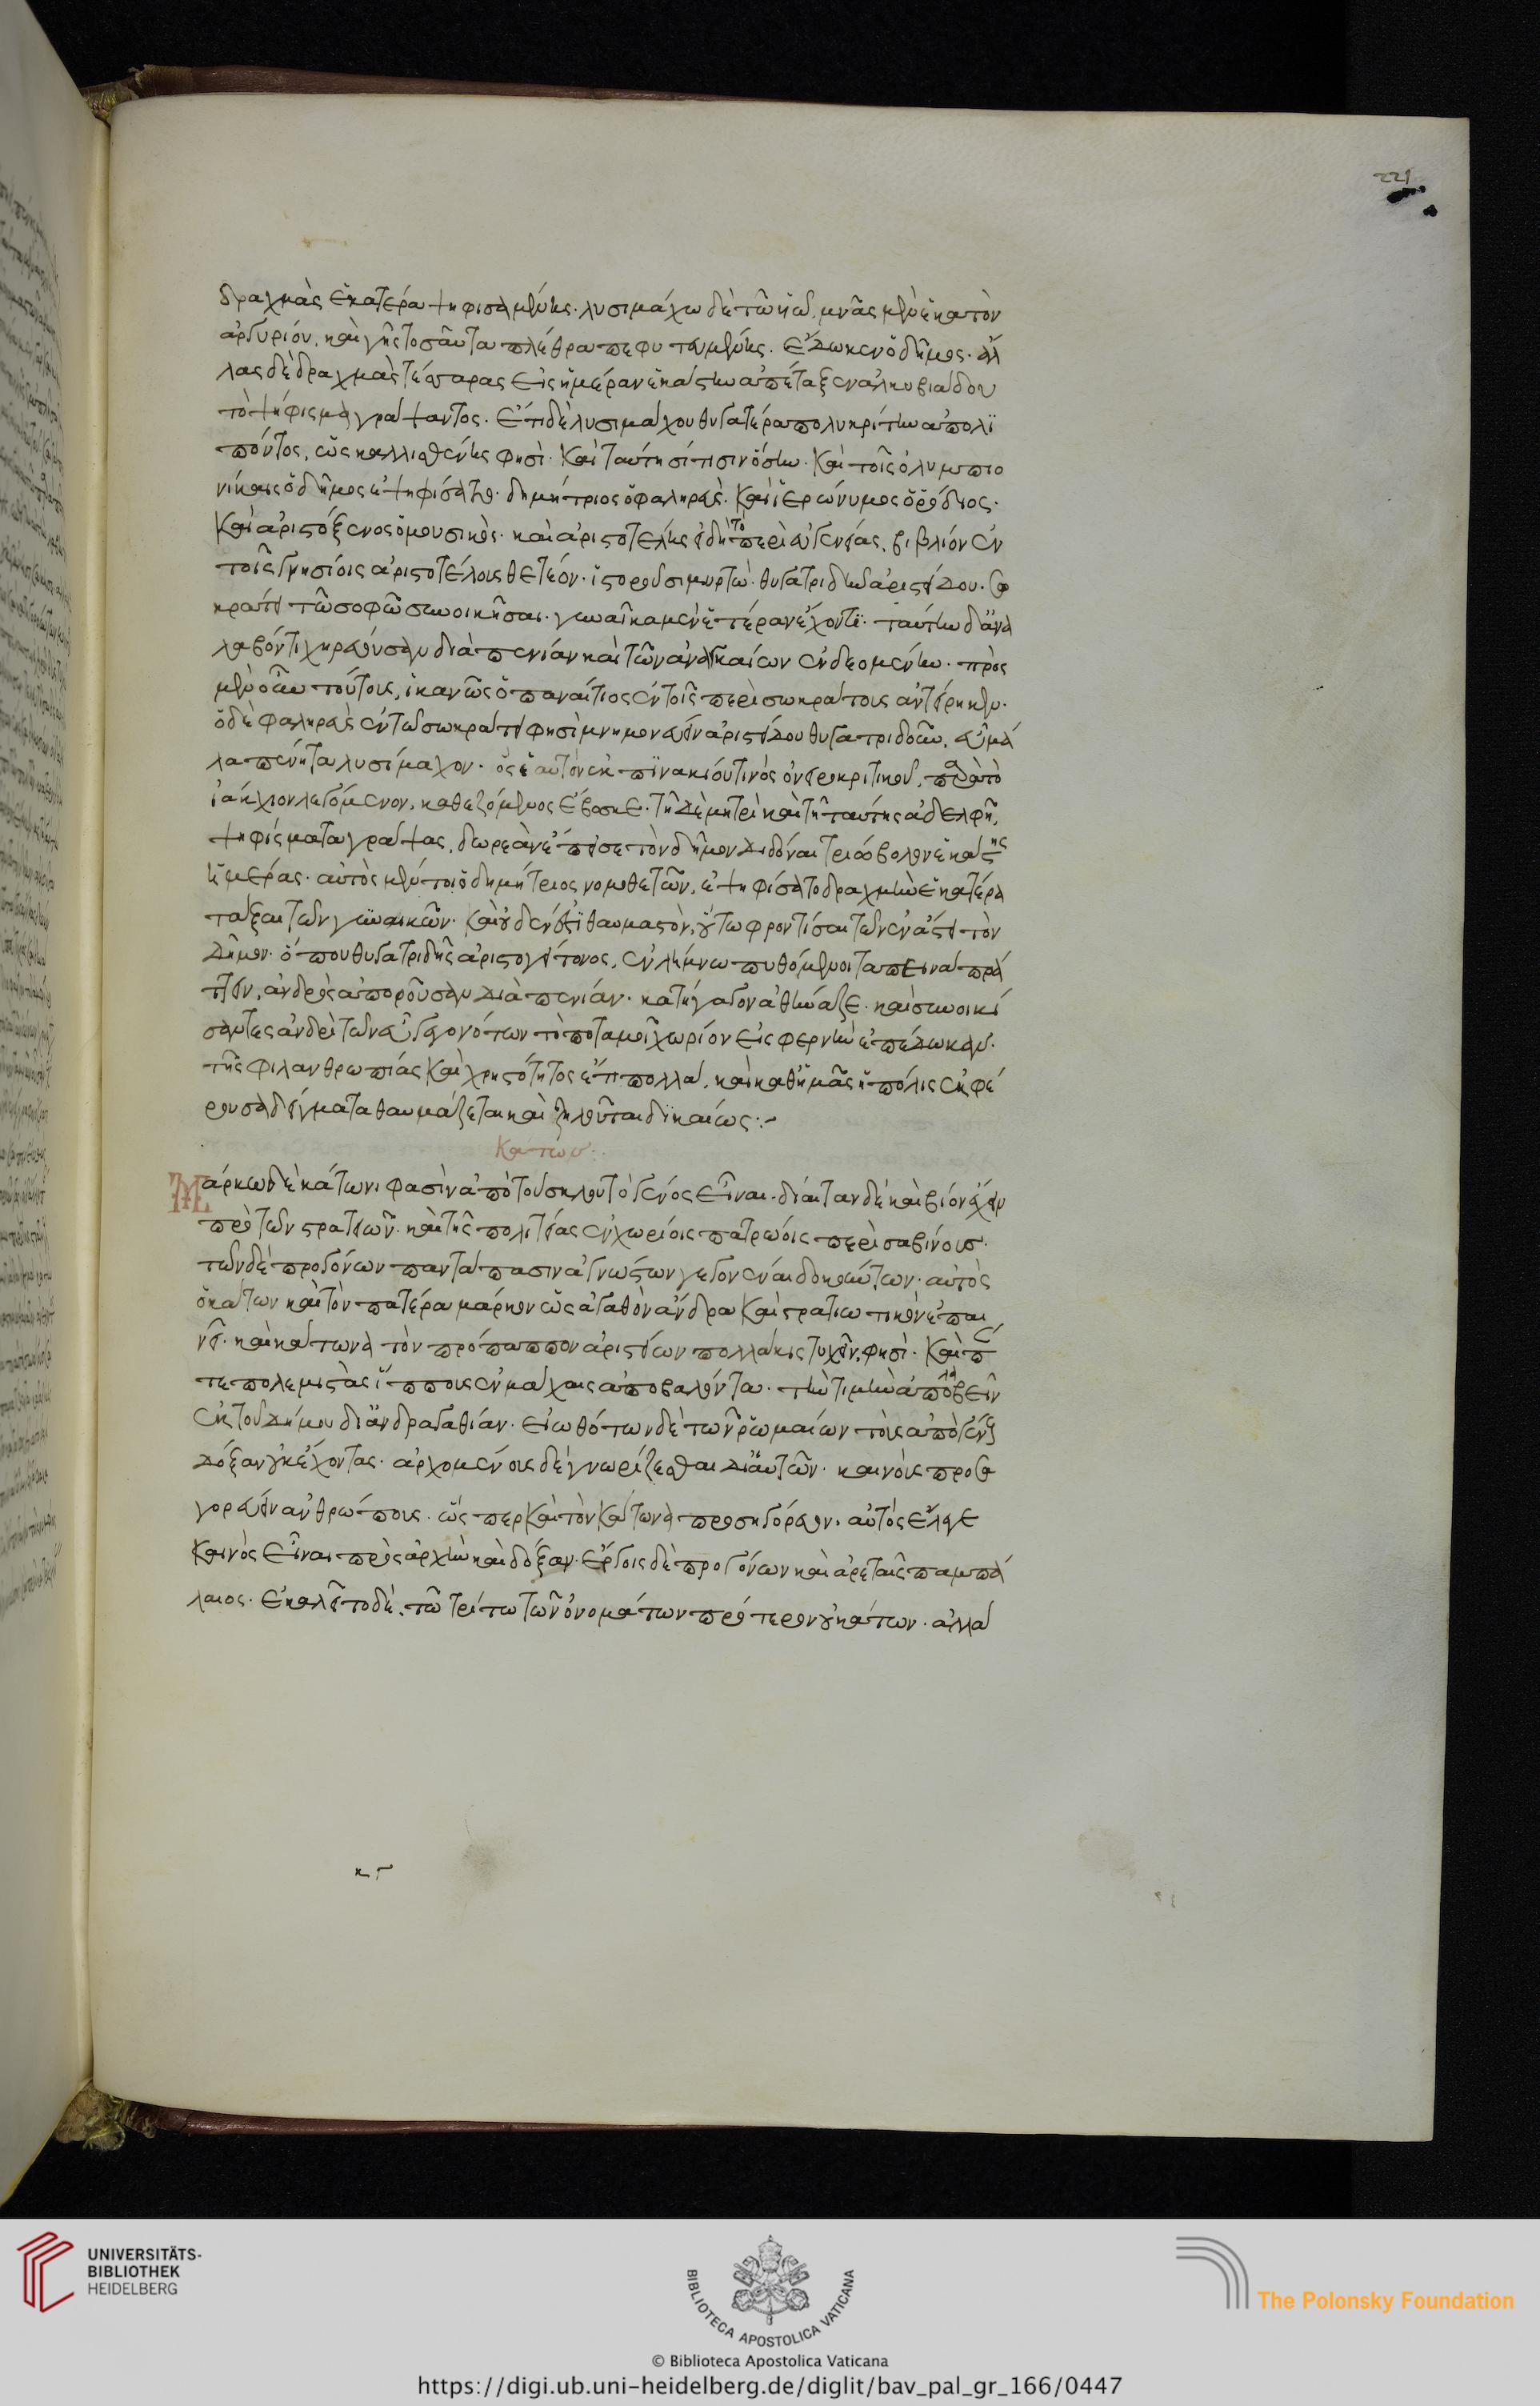 221
δραχμὰς ἑκατέρα ψηφισαμένης· λυσιμάχω δὲ τῶ υἱῶ, μνᾶς μὲν ἑκατὸν
ἀργυρίου, καὶ γῆς τοσαῦτα πλέθρα πεφυτευμένης. ἔδωκεν ὁ δῆμος· ἄλ
λας δὲ δραχμὰς τέσσαρας εἰς ἡμέραν ἑκάστην ἀπέταξεν ἀλκιβιάδου
τὸ ψήφισμα γράψαντος. ἔτι δὲ λυσιμάχου θυγατέρα πολυκρίτην ἀπολι
πόντος, ὡς καλλισθένης φησὶ· καὶ ταύτη σίτησιν ὅσην καὶ τοῖς ὀλυμπιο
νίκαις ὁ δῆμος ἐψηφίσατο· δημήτριος ὁ φαληρεὺς· καὶ ἱερώνυμος ὁ ῥόδιος·
καὶ ἀριστόξενος ὁ μουσικὸς· καὶ ἀριστοτέλης εἰ δὴ τό περὶ εὐγενείας, βιβλίον ἐν
τοῖς γνησίοις ἀριστοτέλους θετέον· ἱστοροῦσι μυρτὼ θυγατριδῆν ἀριστείδου· σω
κράτει τῶ σοφῶ συνοικῆσαι· γυναῖκα μὲν ἑτέραν ἔχοντι· ταύτην δ' ἀνα
λαβόντι χηρεύουσαν διὰ πενίαν καὶ τῶν ἀναγκαίων ἐνδεομένην· πρὸς
μὲν οὖν τούτους, ἱκανῶς ὁ παναίτιος ἐν τοῖς περὶ σωκράτους ἀντείρηκεν·
ὁ δὲ φαληρεὺς ἐν τῶ σωκράτει φησὶ μνημονεύειν ἀριστείδου θυγατριδοῦν, εὖ μά
λα πένητα λυσίμαχον· ὃς ἑαυτὸν ἐκ πινακίου τινὸς ὀνειροκριτικοῦ, παρὰ τὸ
ἰακχεῖον λεγόμενον, καθεζόμενος ἔβοσκε· τῆ δὲ μητρὶ καὶ τῆ ταύτης ἀδελφῆ,
ψήφισμα γράψας, δωρεὰν ἔπεισε τὸν δῆμον διδόναι τριώβολον ἑκάστης
ἡμέρας· αὐτὸς μέντοι ὁ δημήτριος νομοθετῶν, ἐψηφίσατο δραχμὴν ἑκατέρα
τάξαι τῶν γυναικῶν· καὶ οὐδέν ἐστι θαυμαστὸν, οὕτω φροντίσαι τῶν ἐν ἄστει τὸν
δῆμον· ὅπου θυγατριδῆς ἀριστογείτονος, ἐν λήμνω πυθόμενοι ταπεινὰ πρά
ττειν, ἀνδρὸς ἀποροῦσαν διὰ πενίαν· κατήγαγον ἀθήναζε· καὶ συνοικί
σαντες ἀνδρὶ τῶν εὖ γεγονότων τὸ ποταμοῖ χωρίον εἰς φερνὴν ἐπέδωκαν·
τῆς φιλανθρωπίας καὶ χρηστότητος ἔτι πολλὰ, καὶ καθ' ἡμᾶς ἡ πόλις ἐκφέ
ρουσα δείγματα θαυμάζεται καὶ ζηλοῦται δικαίως:~
κάτων:
Μάρκω δὲ κάτωνι φασὶν ἀπὸ τούσκλου τὸ γένος εἶναι· δίαιταν δὲ καὶ βίον ἔχειν
πρὸ τῶν στρατειῶν· καὶ τῆς πολιτείας ἐν χωρίοις πατρώοις περὶ σαβίνους·
τῶν δὲ προγόνων παντάπασιν ἀγνώστων γεγονέναι δοκούντων· αὐτὸς
ὁ κάτων καὶ τὸν πατέρα μάρκον ὡς ἀγαθὸν ἄνδρα καὶ στρατιωτικὸν ἐπαι
νεῖ· καὶ κάτωνα τὸν πρόπαππον ἀριστείων πολλάκις τυχεῖν, φησὶ· καὶ πέν
τε πολεμιστὰς ἵππους ἐν μάχαις ἀποβαλόντα· τὴν τιμὴν ἀπολαβεῖν
ἐκ τοῦ δήμου δι' ἀνδραγαθίαν· εἰωθότων δὲ τῶν ῥωμαίων τοὺς ἀπὸ γένους
δόξαν οὐκ ἔχοντας· ἀρχομένους δὲ γνωρίζεσθαι δι' αὑτῶν· καινοὺς προσα
γορεύειν ἀνθρώπους· ὥσπερ καὶ τὸν κάτωνα προσηγόρευον· αὐτὸς ἔλεγε
καινὸς εἶναι πρὸς ἀρχὴν καὶ δόξαν· ἔργοις δὲ προγόνων καὶ ἀρεταῖς παμπά
λαιος· ἐκαλεῖτο δὲ· τῶ τρίτω τῶν ὀνομάτων πρότερον οὐ κάτων· ἀλλὰ
UNIVERSITÄTS-
BIBLIOTHEK
HEIDELBERG
BIBLIOTECA APOSTOLICA VATICANA
The Polonsky Foundation
© Biblioteca Apostolica Vaticana
https://digi.ub.uni-heidelberg.de/diglit/bav_pal_gr_166/0447